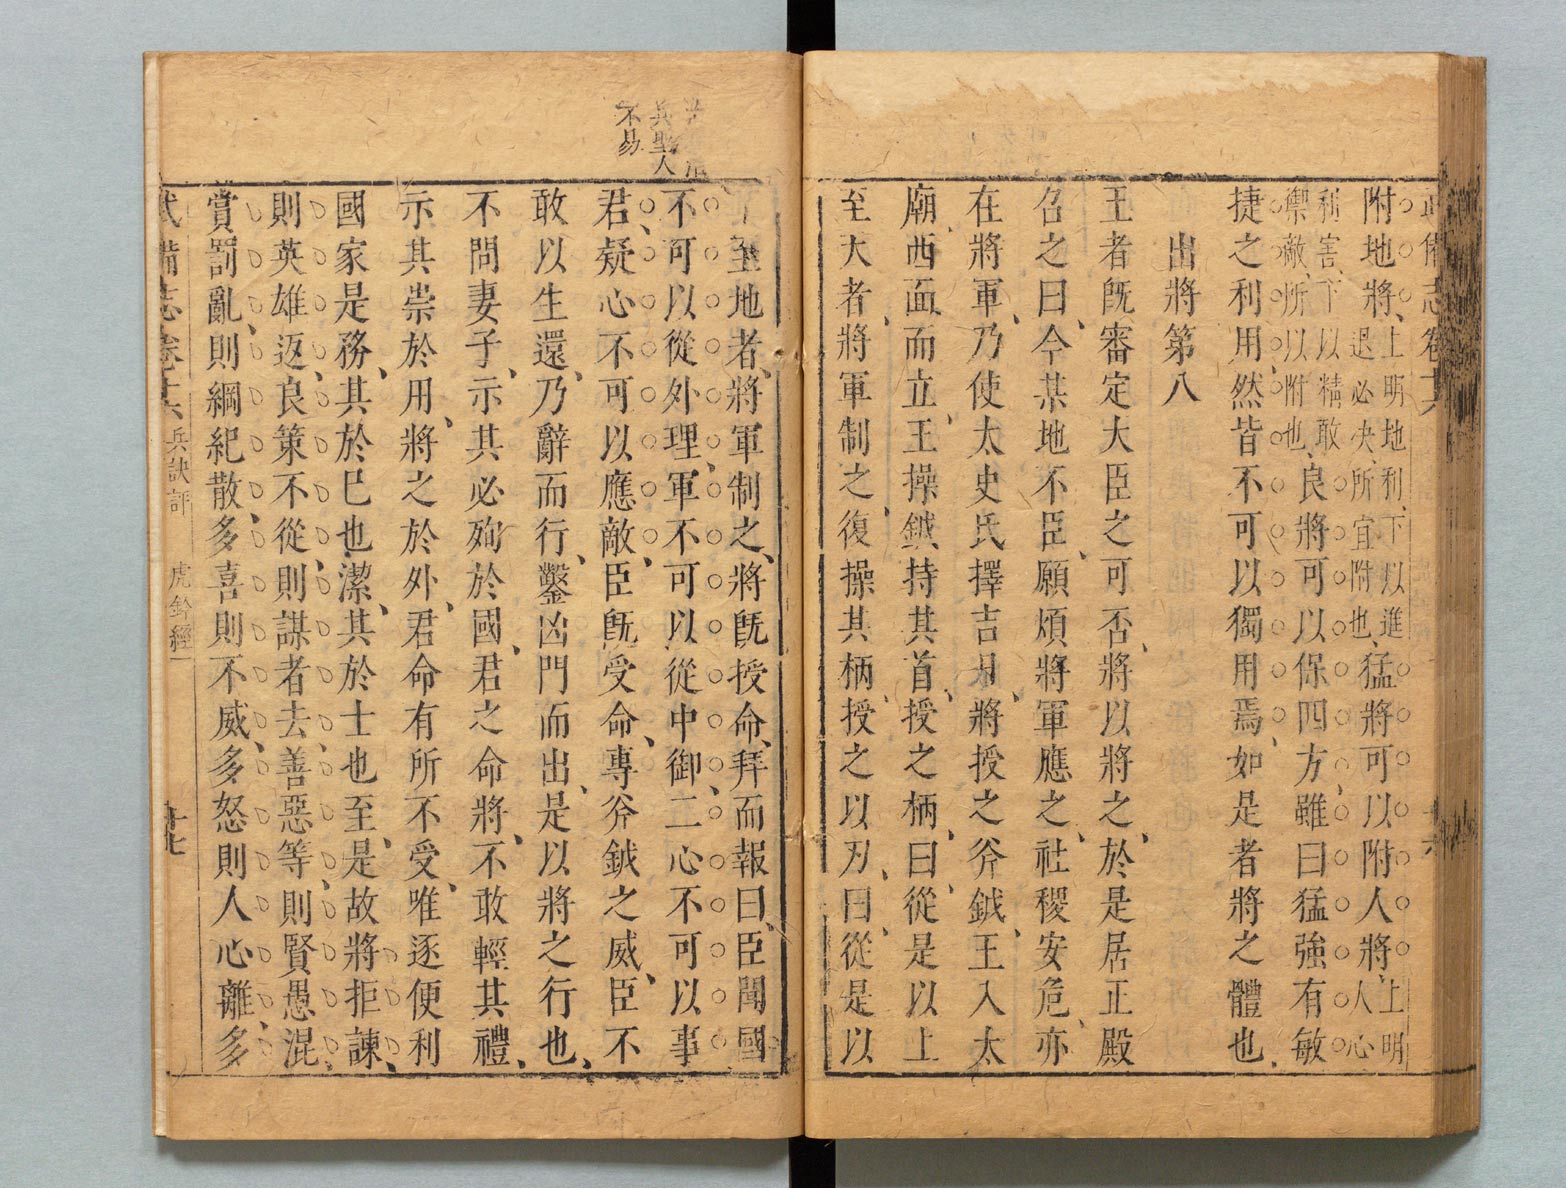 武備志卷十六
附地將上明地利下以進
退必決所宜附也猛將可以附人將上明人心
利害下以精敢
禦敵所以附也良將可以保四方雖曰猛強有敏
捷之利用然皆不可以獨用焉如是者將之體也
出將第八
王者旣審定大臣之可否將以將之於是居正殿
召之曰今某地不臣願煩將軍應之社稷安危亦
在將軍乃使太史氏擇吉日將授之斧鉞王入太
廟西面而立王操鉞持其首授之柄曰從是以上
至天者將軍制之復操其柄授之以刃曰從是以
下至地者將軍制之將旣授命拜而報曰臣聞國
不可以從外理軍不可以從中御二心不可以事
君疑心不可以應敵臣旣受命專斧鉞之威臣不
敢以生還乃辭而行鑿凶門而出是以將之行也
不問妻子示其必殉於國君之命將不敢輕其禮
示其崇於用將之於外君命有所不受唯逐便利
國家是務其於已也潔其於士也至是故將拒諫
則英雄返良策不從則謀者去善惡等則賢愚混
賞罰亂則綱紀散多喜則不威多怒則人心離多
兵聖人
不易
武備志卷十六 兵訣評 虎鈐經一 十七